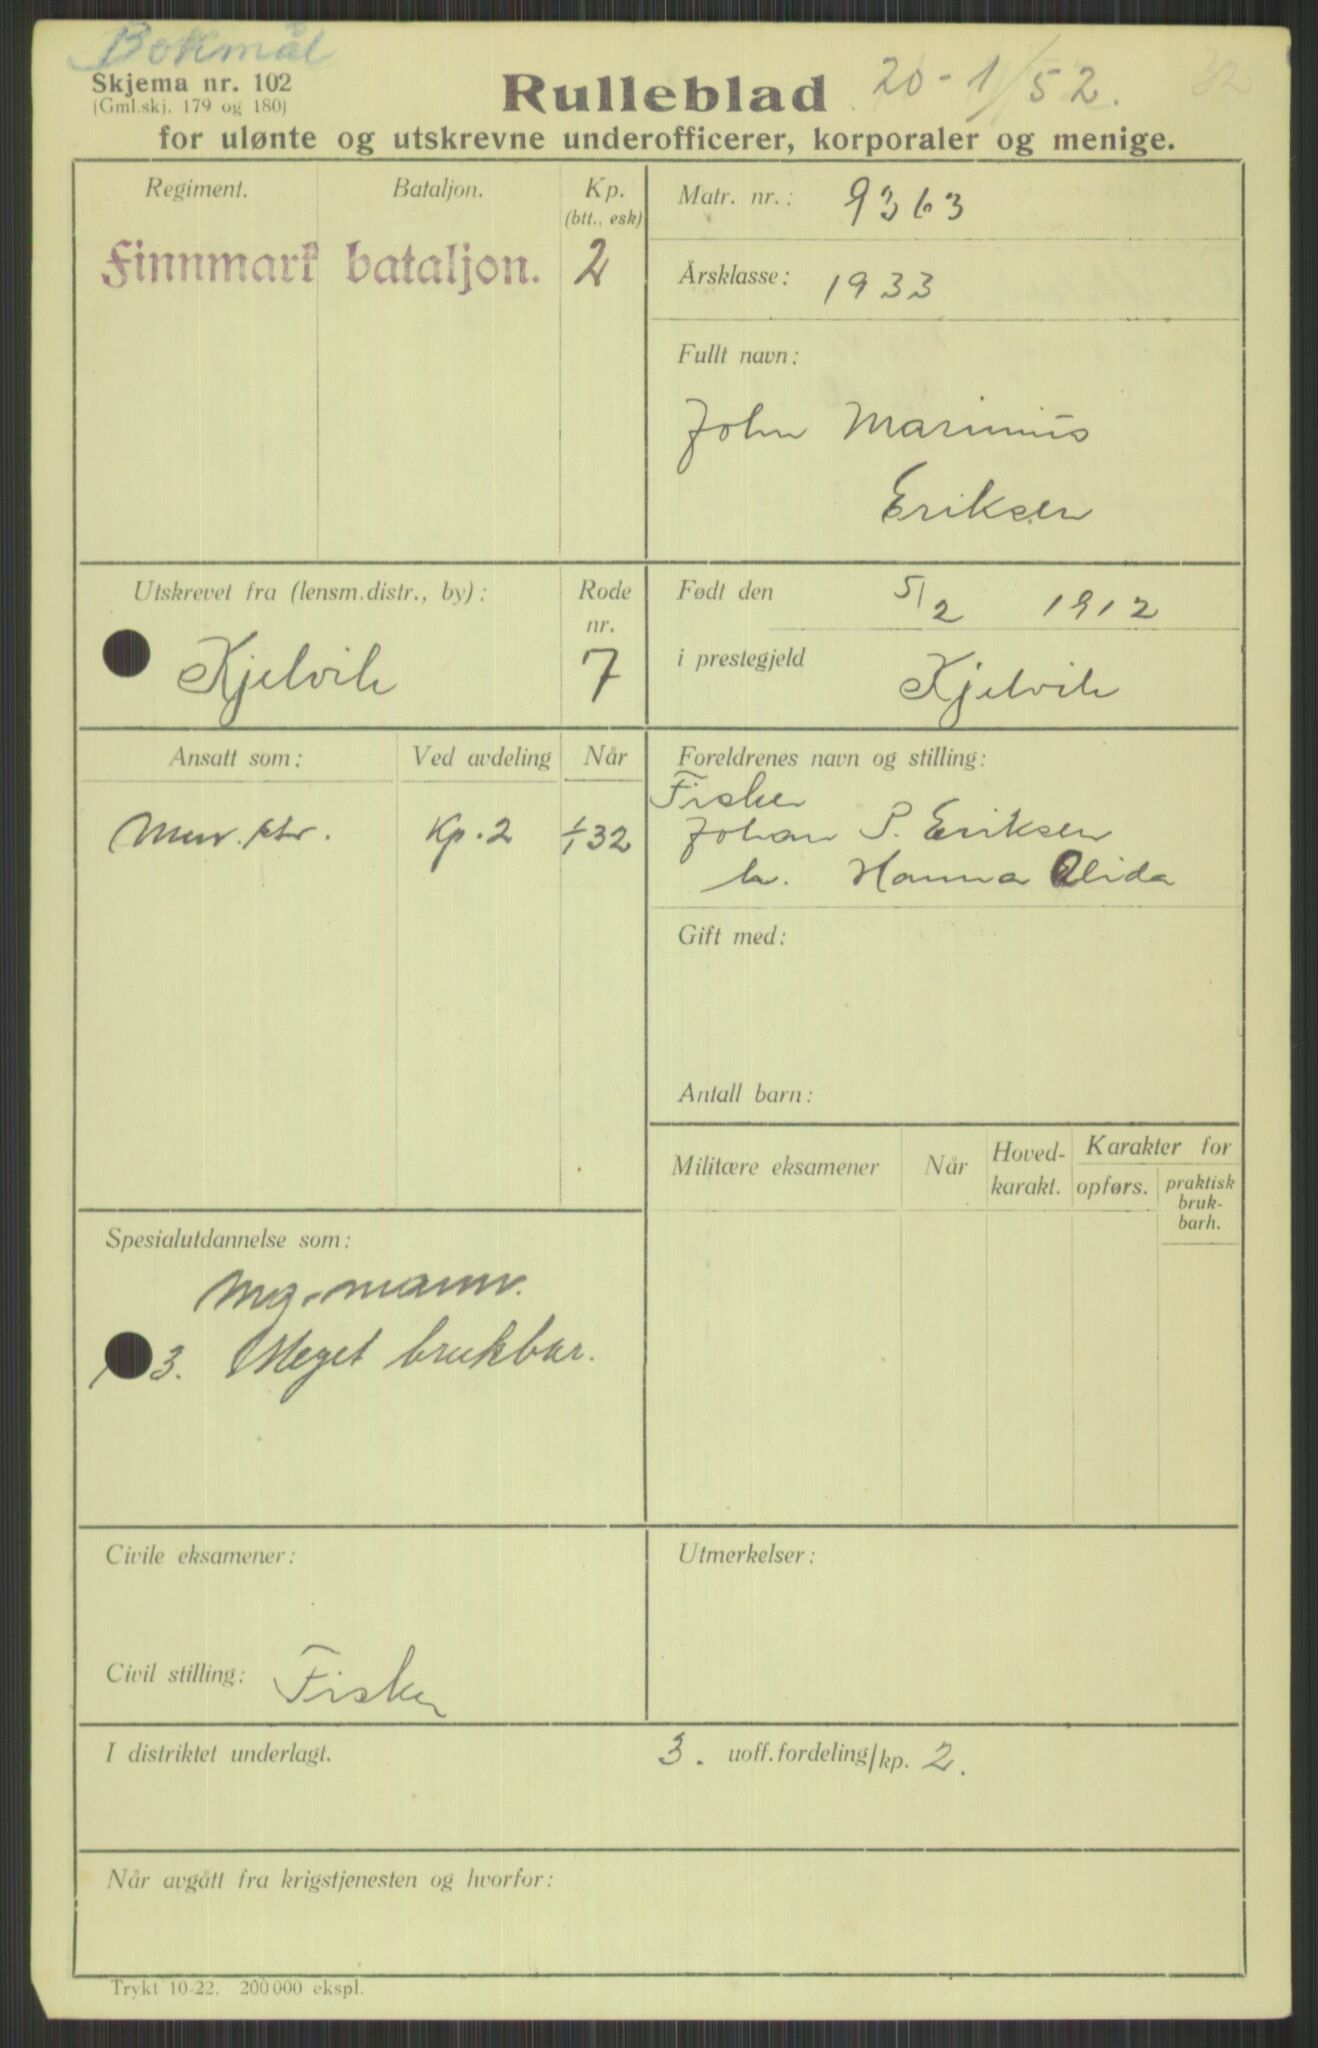 Bokmål
Skjema nr. 102
(Gml.skj. 179 og 180)
Rulleblad 20-1/52. 32
for ulønte og utskrevne underofficerer, korporaler og menige.
Regiment. Bataljon. Kp.
(btt., esk)
Finnmark bataljon. 2
Matr. nr.: 9363
Årsklasse: 1933
Fullt navn:
John Marinius
Eriksen
Utskrevet fra (lensm.distr., by): Rode
nr.
Kjelvik 7
Født den 5/2 1912
i prestegjeld Kjelvik
Ansatt som: Ved avdeling Når
Men. Kp. 2 1/1 32
Foreldrenes navn og stilling:
Fisker
Johan P. Eriksen
h. Hanna Alida
Gift med:
Antall barn:
Militære eksamener Når Hoved-
karakt. Karakter for
opførs. praktisk
bruk-
barh.
Spesialutdannelse som:
Mg.-mann.
3. Meget brukbar.
Civile eksamener:
Civil stilling: Fisker
Utmerkelser:
I distriktet underlagt. 3. uoff.fordeling/kp. 2.
Når avgått fra krigstjenesten og hvorfor:
Trykt 10-22. 200 000 ekspl.